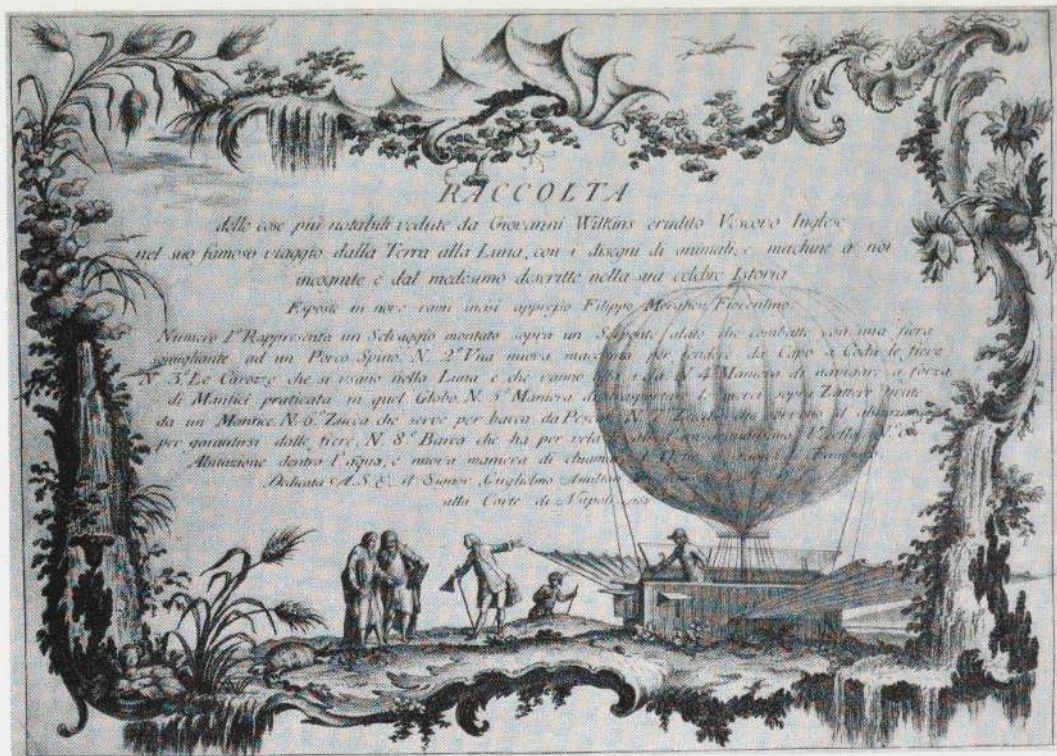 RACCOLTA
delle cose più notabili vedute da Giovanni Wilkins erudito Vescovo Inglese
nel suo famoso viaggio dalla Terra alla Luna, con i disegni di animali, e machine a noi
incognite e dal medesimo descritte nella sua celebre Istoria
Esposte in nove rami incisi appresso Filippo Morghen Fiorentino
Numero 1º Rappresenta un Selvaggio montato sopra un Serpente alato che combatte con una fiera
somigliante ad un Porco Spino. N. 2º Una nuova macchina per fendere da Capo a Coda le fiere
N. 3º Le Carozze che si usano nella Luna e che vanno a N. 4º Maniera di navigare a forza
di Mantici praticata in quel Globo. N. 5º Maniera di sopra Zattere tirate
da un Mantice. N. 6º Zucca che serve per barca da N. che servono di abitazione
per garantirsi dalle fiere. N. 8º Barca che ha per vela
Abitazione dentro l'aqua, e nuova maniera di
Dedicata A. S. E. il Signor Guglielmo
alla Corte di Napoli